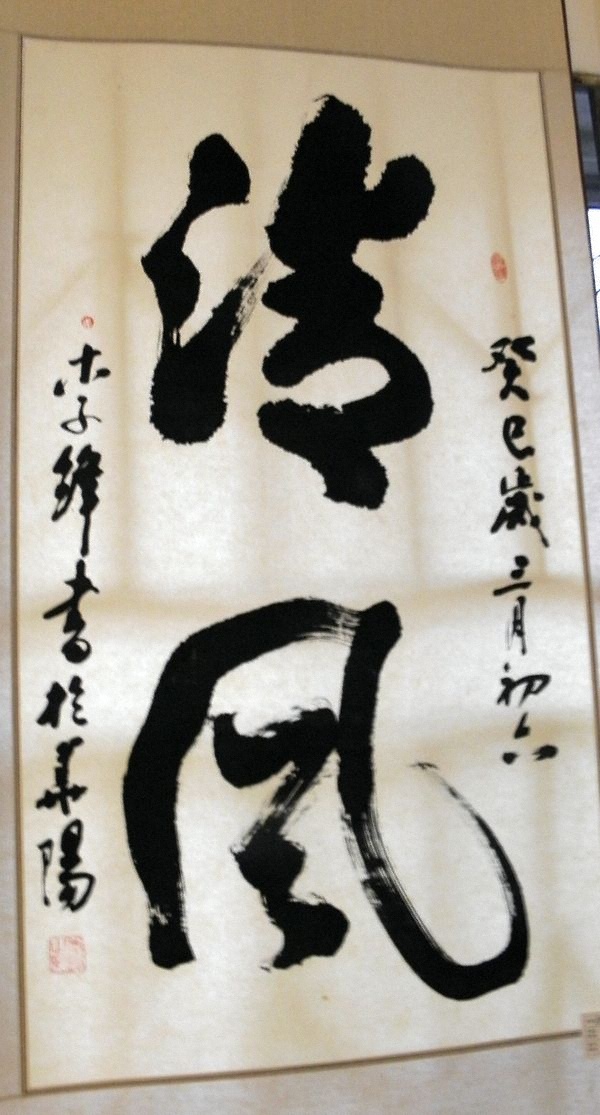 癸巳歲三月初六
清风
木子鋒書於華陽